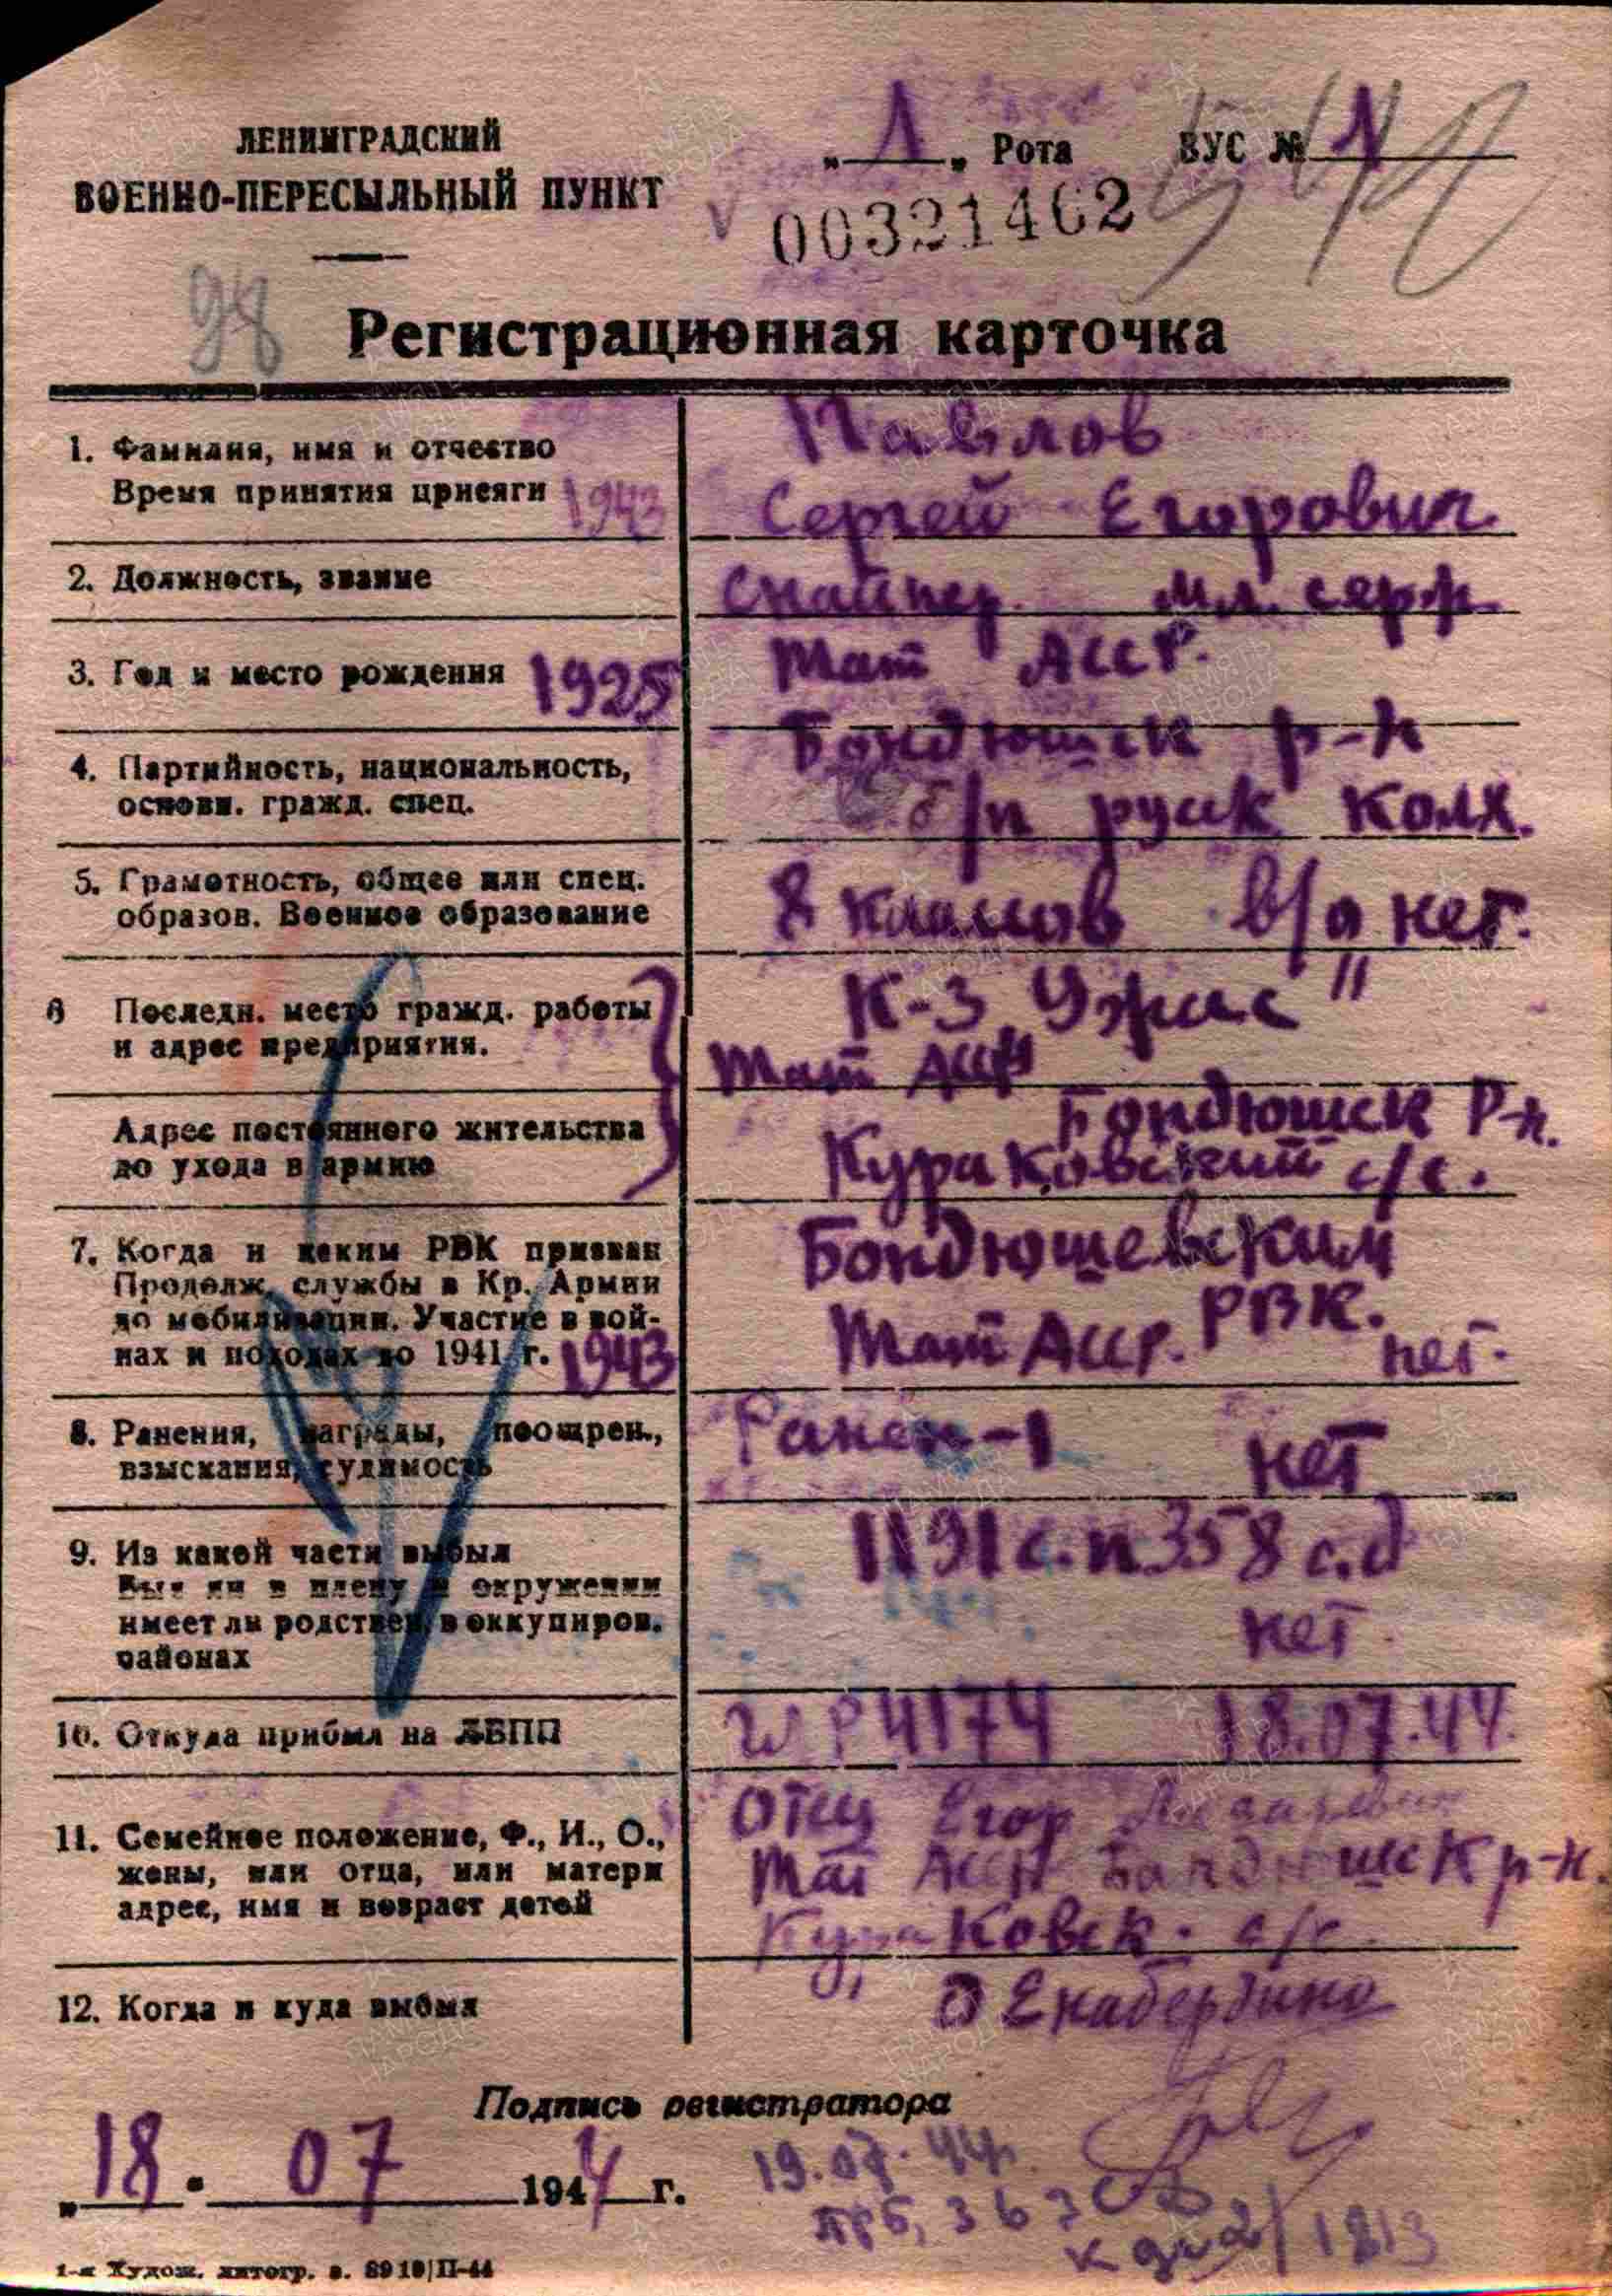 ЛЕНИНГРАДСКИЙ
ВОЕННО-ПЕРЕСЫЛЬНЫЙ ПУНКТ
„ 1 „ Рота ВУС № 1
00321462
98
Регистрационная карточка
1. Фамилия, имя и отчество
Время принятия присяги 1943
Павлов
Сергей Егорович
2. Должность, звание
снайпер. мл. серж.
3. Год и место рождения 1925
Тат АССР.
Бондюшск р-н
4. Партийность, национальность,
основн. гражд. спец.
б/п руск колх.
5. Грамотность, общее или спец.
образов. Военное образование
8 классов в/о нет.
6 Последн. место гражд. работы
и адрес предприятия.
К-З
Тат АССР
Адрес постоянного жительства
до ухода в армию
Бондюшск Р-н.
Кураковский с/с.
7. Когда и каким РВК призван
Продолж. службы в Кр. Армии
до мобилизации. Участие в вой-
нах и походах до 1941 г. 1943
Бондюшевским
РВК.
Тат АССР. нет.
8. Ранения, награды, поощрен.,
взыскания, судимость
Ранен-1 нет
9. Из какой части выбыл
Был ли в плену и окружении
имеет ли родствен. в оккупиров.
районах
1191 с.п 358 с.д
нет.
10. Откуда прибыл на ЛВПП
4174 18.07.44.
11. Семейное положение, Ф., И., О.,
жены, или отца, или матери
адрес, имя и возраст детей
отец Егор
Тат АССР Бондюшск р-н.
Кураковск. с/с.
12. Когда и куда выбыл
Подпись регистратора
„ 18 " 07 1944 г.
19.07.44г.
1-я Худож. литогр. з. 8910/П-44